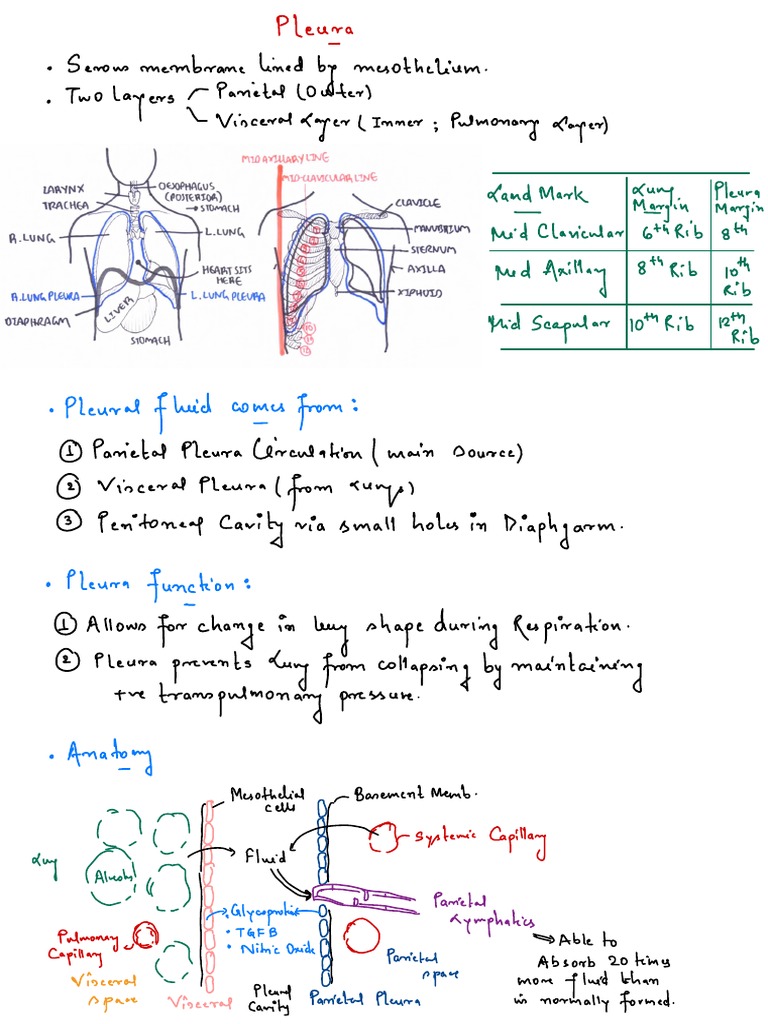 Pleura
• Serous membrane lined by mesothelium.
• Two layers
Parietal (Outer)
Visceral Layer (Inner ; Pulmonary Layer)
LARYNX
TRACHEA
OESOPHAGUS
(POSTERIOR)
→ STOMACH
R.LUNG
L.LUNG
HEART SITS
HERE
R.LUNG PLEURA
L.LUNG PLEURA
DIAPHRAGM
LIVER
STOMACH
MID AXILLARY LINE
MID-CLAVICULAR LINE
CLAVICLE
MANUBRIUM
STERNUM
AXILLA
XIPHUID
10
11
12
Land Mark Lung Margin Pleura Margin
Mid Clavicular 6th Rib 8th
Mid Axillary 8th Rib 10th Rib
Mid Scapular 10th Rib 12th Rib
• Pleural fluid comes from :
① Parietal Pleura Circulation ( main source)
② Visceral Pleura ( from Lungs)
③ Peritoneal Cavity via small holes in Diaphgarm.
• Pleura function :
① Allows for change in lung shape during Respiration.
② Pleura prevents Lung from collapsing by maintaining
+ve transpulmonary pressure.
• Anatomy
Mesothelial
cells
Basement Memb.
Systemic Capillary
Lung
Alveoli
Fluid
Parietal
Lymphatics
• Glycoprotein
• TGFB
• Nitric Oxide
Pulmonary
Capillary
Parietal
space
⇒ Able to
Absorb 20 times
more fluid than
is normally formed.
Visceral
space
Visceral
Pleural
Cavity
Parietal Pleura